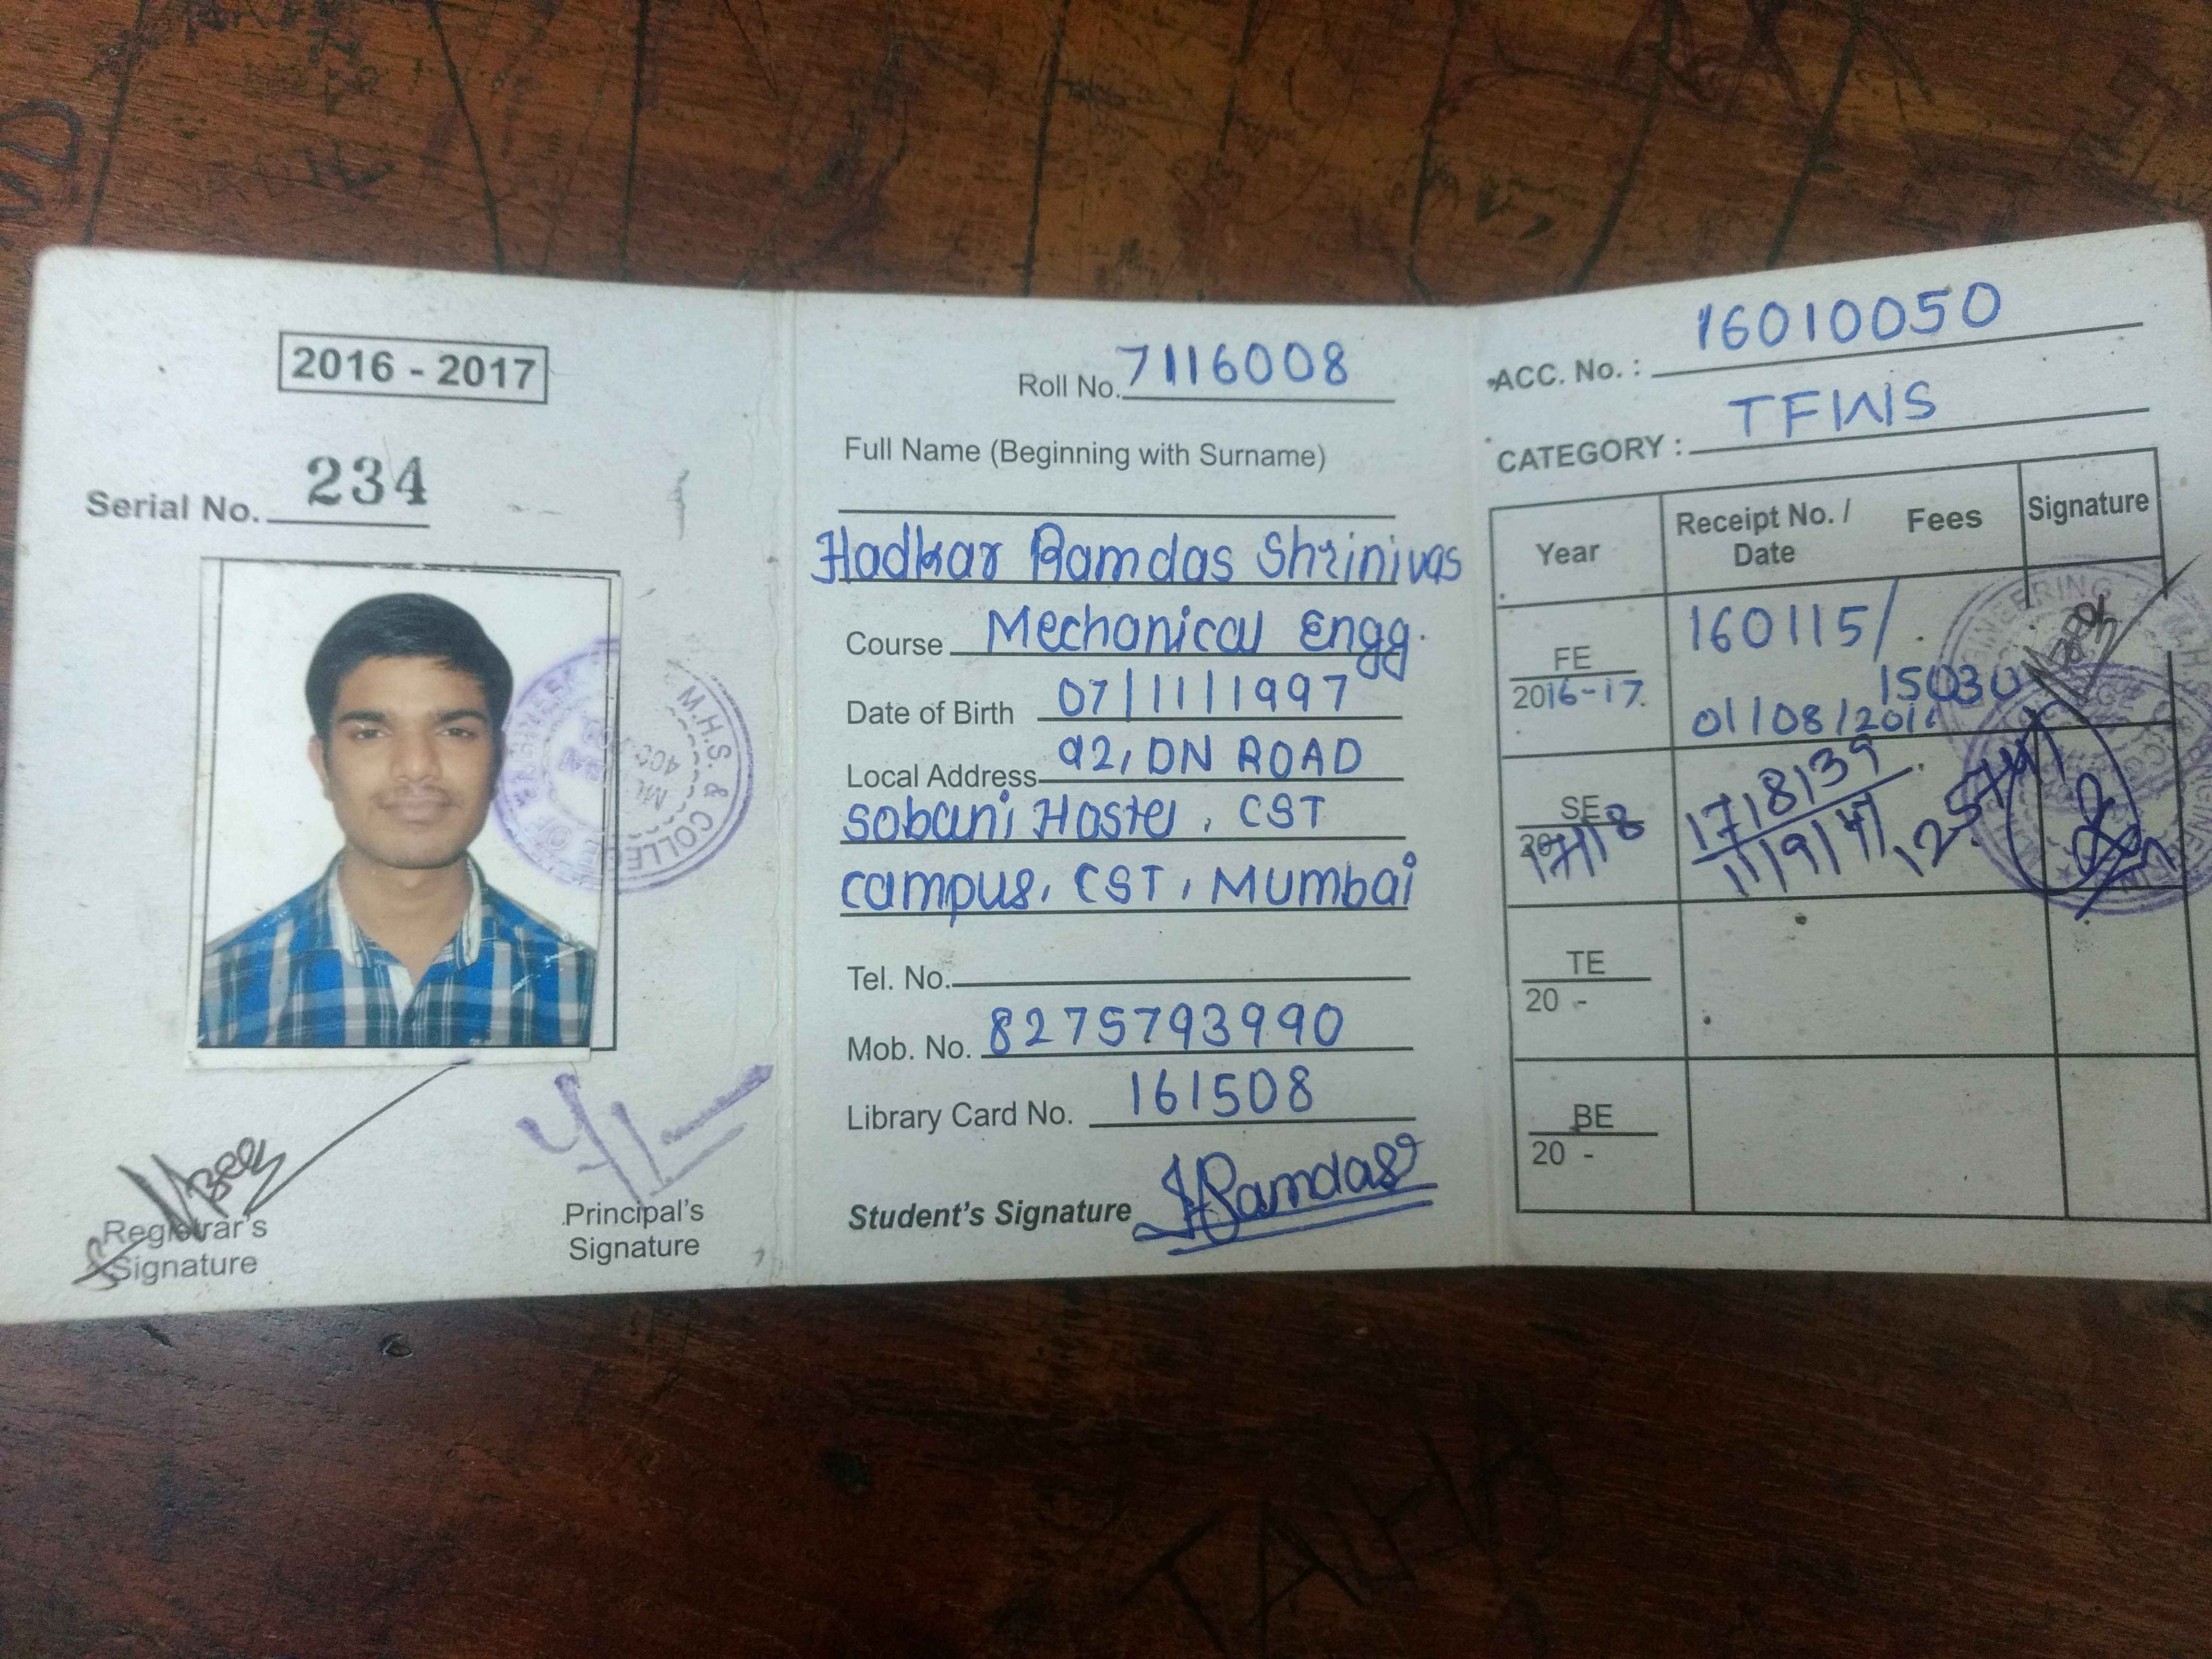 2016 - 2017
Serial No. 234
M.H.S. & COLLEGE OF ENGINE
Registrar's
Signature
Principal's
Signature
Roll No. 7116008
Full Name (Beginning with Surname)
Hadkar Ramdas Shrinivas
Course Mechanical Engg.
Date of Birth 07/11/1997
Local Address 92, DN ROAD
Sobani Hostel, CST
campus, CST, Mumbai
Tel. No.
Mob. No. 8275793990
Library Card No. 161508
Student's Signature HRamdas
ACC. No. : 16010050
CATEGORY : TFWS
Year Receipt No. / Date Fees Signature
FE 160115/
2016-17. 15030
01/08/201
SE 1718139
17/18 11/9/17
TE
20 -
BE
20 -
TALHA